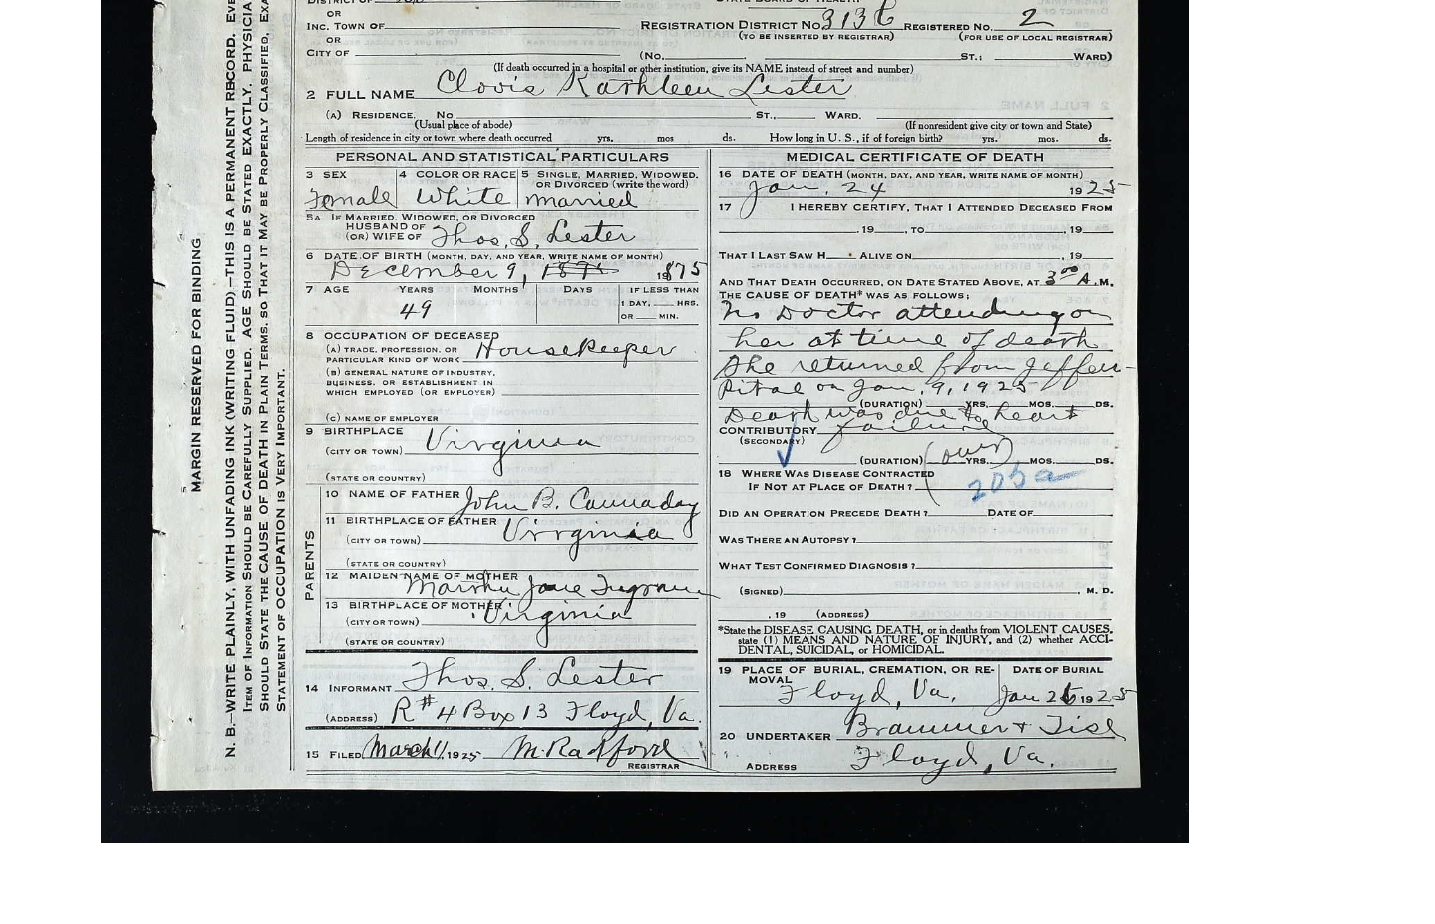 REGISTRATION DISTRICT No. 3136 REGISTERED No. 2
OR
INC. TOWN OF
(TO BE INSERTED BY REGISTRAR) (FOR USE OF LOCAL REGISTRAR)
OR
CITY OF (No. ST.; WARD)
(If death occurred in a hospital or other institution, give its NAME instead of street and number)
2 FULL NAME Clovis Kathleen Lester
(A) RESIDENCE. No ST., WARD.
(Usual place of abode) (If nonresident give city or town and State)
Length of residence in city or town where death occurred yrs. mos ds. How long in U. S., if of foreign birth? yrs. mos. ds.
PERSONAL AND STATISTICAL PARTICULARS
3 SEX 4 COLOR OR RACE 5 SINGLE, MARRIED, WIDOWED, OR DIVORCED (write the word)
Female White married
5A IF MARRIED, WIDOWED, OR DIVORCED
HUSBAND OF
(OR) WIFE OF Thos. S. Lester
6 DATE OF BIRTH (MONTH, DAY, AND YEAR, WRITE NAME OF MONTH)
December 9, 1875
7 AGE YEARS MONTHS DAYS IF LESS THAN
1 DAY, HRS.
OR MIN.
49
8 OCCUPATION OF DECEASED
(A) TRADE, PROFESSION, OR
PARTICULAR KIND OF WORK Housekeeper
(B) GENERAL NATURE OF INDUSTRY,
BUSINESS, OR ESTABLISHMENT IN
WHICH EMPLOYED (OR EMPLOYER)
(C) NAME OF EMPLOYER
9 BIRTHPLACE
(CITY OR TOWN) Virginia
(STATE OR COUNTRY)
PARENTS
10 NAME OF FATHER John B. Cannaday
11 BIRTHPLACE OF FATHER
(CITY OR TOWN) Virginia
(STATE OR COUNTRY)
12 MAIDEN NAME OF MOTHER
Jane
13 BIRTHPLACE OF MOTHER
(CITY OR TOWN) Virginia
(STATE OR COUNTRY)
14 INFORMANT Thos. S. Lester
(ADDRESS) R#4 Box 13 Floyd, Va.
15 FILED March 11, 1925 M. Radford
REGISTRAR
MEDICAL CERTIFICATE OF DEATH
16 DATE OF DEATH (MONTH, DAY, AND YEAR, WRITE NAME OF MONTH)
Jan. 24 1925
17 I HEREBY CERTIFY, THAT I ATTENDED DECEASED FROM
, 19 , TO , 19
THAT I LAST SAW H ALIVE ON , 19
AND THAT DEATH OCCURRED, ON DATE STATED ABOVE, AT 3 00 A.M.
THE CAUSE OF DEATH* WAS AS FOLLOWS:
No Doctor attending on
her at time of death
She returned from Jeffer-
pital on Jan. 9, 1925
(DURATION) YRS. MOS. DS.
Death was due to heart
CONTRIBUTORY failure
(SECONDARY)
(DURATION) (over) YRS. MOS. DS.
18 WHERE WAS DISEASE CONTRACTED
IF NOT AT PLACE OF DEATH?
205a
DID AN OPERATION PRECEDE DEATH? DATE OF
WAS THERE AN AUTOPSY?
WHAT TEST CONFIRMED DIAGNOSIS?
(SIGNED) , M. D.
, 19 (ADDRESS)
*State the DISEASE CAUSING DEATH, or in deaths from VIOLENT CAUSES,
state (1) MEANS AND NATURE OF INJURY, and (2) whether ACCI-
DENTAL, SUICIDAL, or HOMICIDAL.
19 PLACE OF BURIAL, CREMATION, OR RE-
MOVAL DATE OF BURIAL
Floyd, Va. Jan 26 1925
20 UNDERTAKER Brammer +
ADDRESS Floyd, Va.
MARGIN RESERVED FOR BINDING
N. B.—WRITE PLAINLY, WITH UNFADING INK (WRITING FLUID)—THIS IS A PERMANENT RECORD.
ITEM OF INFORMATION SHOULD BE CAREFULLY SUPPLIED. AGE SHOULD BE STATED EXACTLY.
SHOULD STATE THE CAUSE OF DEATH IN PLAIN TERMS, SO THAT IT MAY BE PROPERLY CLASSIFIED.
STATEMENT OF OCCUPATION IS VERY IMPORTANT.